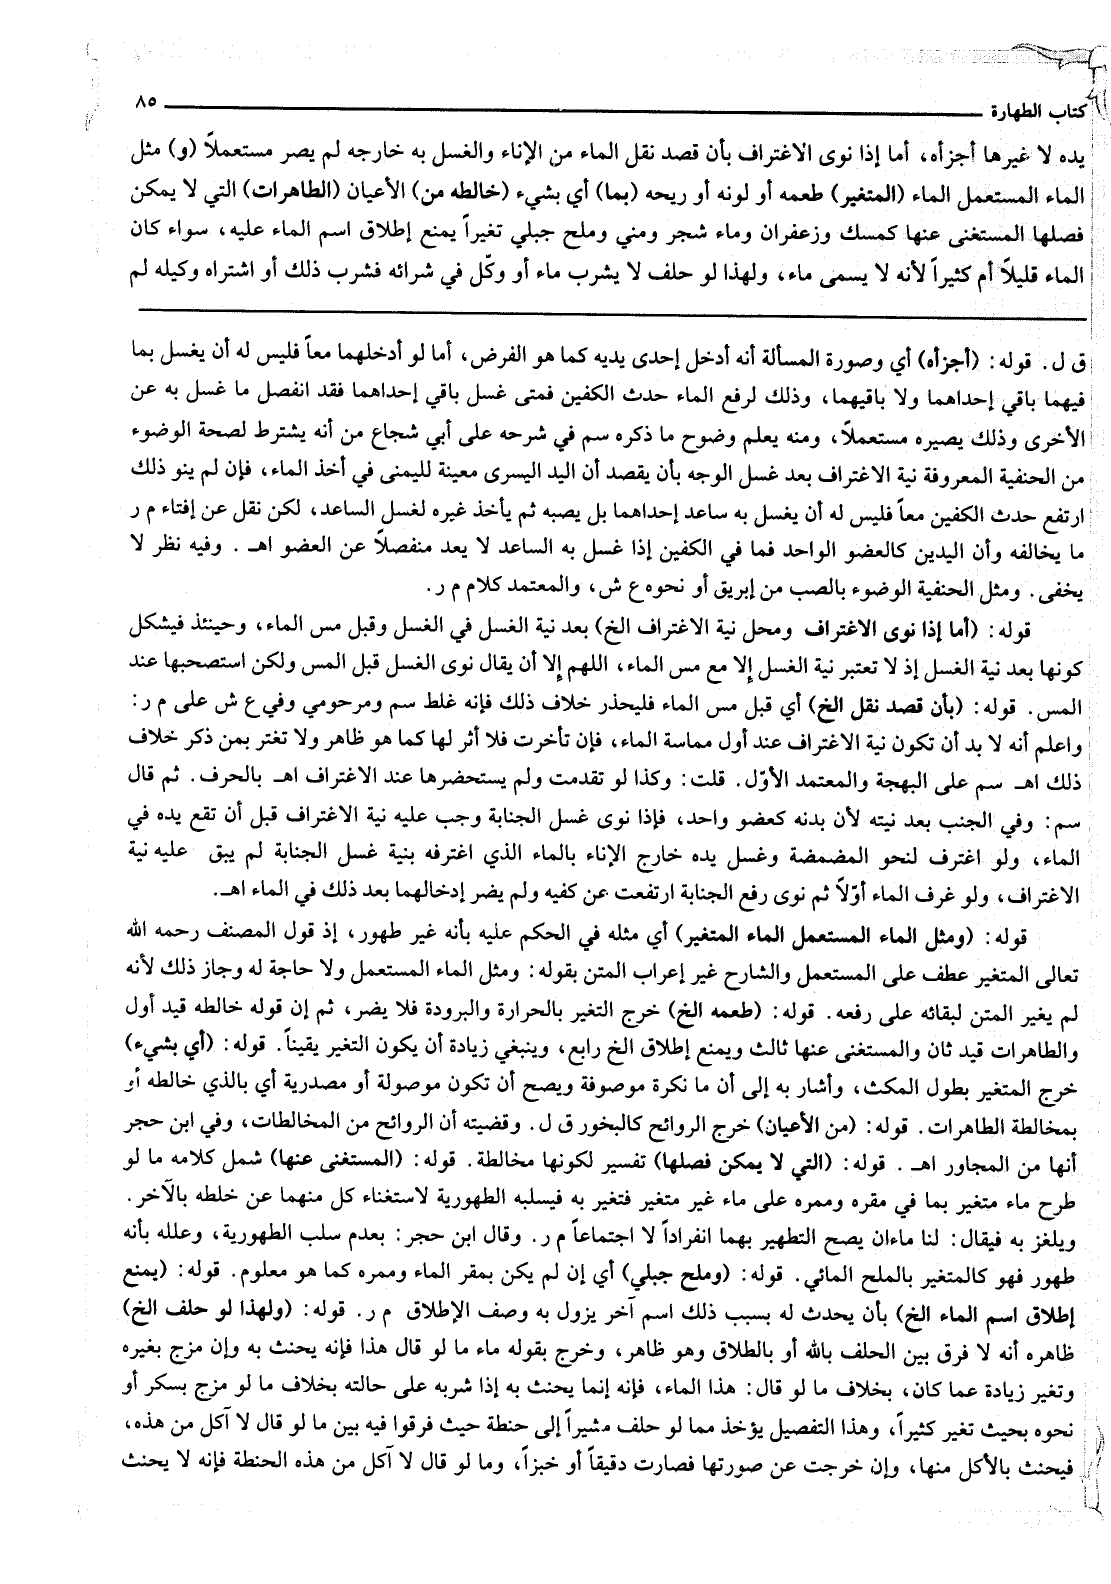 كتاب الطهارة ٨٥
يده لا غيرها أجزأه، أما إذا نوى الاغتراف بأن قصد نقل الماء من الإناء والغسل به خارجه لم يصر مستعملاً (و) مثل
الماء المستعمل الماء (المتغير) طعمه أو لونه أو ريحه (بما) أي بشيء (خالطه من) الأعيان (الطاهرات) التي لا يمكن
فصلها المستغنى عنها كمسك وزعفران وماء شجر ومني وملح جبلي تغيراً يمنع إطلاق اسم الماء عليه، سواء كان
الماء قليلاً أم كثيراً لأنه لا يسمى ماء، ولهذا لو حلف لا يشرب ماء أو وكّل في شرائه فشرب ذلك أو اشتراه وكيله لم
ق ل. قوله: (أجزأه) أي وصورة المسألة أنه أدخل إحدى يديه كما هو الفرض، أما لو أدخلهما معاً فليس له أن يغسل بما
فيهما باقي إحداهما ولا باقيهما، وذلك لرفع الماء حدث الكفين فمتى غسل باقي إحداهما فقد انفصل ما غسل به عن
الأخرى وذلك يصيره مستعملاً، ومنه يعلم وضوح ما ذكره سم في شرحه على أبي شجاع من أنه يشترط لصحة الوضوء
من الحنفية المعروفة نية الاغتراف بعد غسل الوجه بأن يقصد أن اليد اليسرى معينة لليمنى في أخذ الماء، فإن لم ينو ذلك
ارتفع حدث الكفين معاً فليس له أن يغسل به ساعد إحداهما بل يصبه ثم يأخذ غيره لغسل الساعد، لكن نقل عن إفتاء م ر
ما يخالفه وأن اليدين كالعضو الواحد فما في الكفين إذا غسل به الساعد لا يعد منفصلاً عن العضو اهـ. وفيه نظر لا
يخفى. ومثل الحنفية الوضوء بالصب من إبريق أو نحوه ع ش، والمعتمد كلام م ر.
قوله: (أما إذا نوى الاغتراف ومحل نية الاغتراف الخ) بعد نية الغسل في الغسل وقبل مس الماء، وحينئذ فيشكل
كونها بعد نية الغسل إذ لا تعتبر نية الغسل إلا مع مس الماء، اللهم إلا أن يقال نوى الغسل قبل المس ولكن استصحبها عند
المس. قوله: (بأن قصد نقل الخ) أي قبل مس الماء فليحذر خلاف ذلك فإنه غلط سم ومرحومي وفي ع ش على م ر:
واعلم أنه لا بد أن تكون نية الاغتراف عند أول مماسة الماء، فإن تأخرت فلا أثر لها كما هو ظاهر ولا تغتر بمن ذكر خلاف
ذلك اهـ سم على البهجة والمعتمد الأوّل. قلت: وكذا لو تقدمت ولم يستحضرها عند الاغتراف اهـ بالحرف. ثم قال
سم: وفي الجنب بعد نيته لأن بدنه كعضو واحد، فإذا نوى غسل الجنابة وجب عليه نية الاغتراف قبل أن تقع يده في
الماء، ولو اغترف لنحو المضمضة وغسل يده خارج الإناء بالماء الذي اغترفه بنية غسل الجنابة لم يبق عليه نية
الاغتراف، ولو غرف الماء أوّلاً ثم نوى رفع الجنابة ارتفعت عن كفيه ولم يضر إدخالهما بعد ذلك في الماء اهـ.
قوله: (ومثل الماء المستعمل الماء المتغير) أي مثله في الحكم عليه بأنه غير طهور، إذ قول المصنف رحمه الله
تعالى المتغير عطف على المستعمل والشارح غير إعراب المتن بقوله: ومثل الماء المستعمل ولا حاجة له وجاز ذلك لأنه
لم يغير المتن لبقائه على رفعه. قوله: (طعمه الخ) خرج التغير بالحرارة والبرودة فلا يضر، ثم إن قوله خالطه قيد أول
والطاهرات قيد ثان والمستغنى عنها ثالث ويمنع إطلاق الخ رابع، وينبغي زيادة أن يكون التغير يقيناً. قوله: (أي بشيء)
خرج المتغير بطول المكث، وأشار به إلى أن ما نكرة موصوفة ويصح أن تكون موصولة أو مصدرية أي بالذي خالطه أو
بمخالطة الطاهرات. قوله: (من الأعيان) خرج الروائح كالبخور ق ل. وقضيته أن الروائح من المخالطات، وفي ابن حجر
أنها من المجاور اهـ. قوله: (التي لا يمكن فصلها) تفسير لكونها مخالطة. قوله: (المستغنى عنها) شمل كلامه ما لو
طرح ماء متغير بما في مقره وممره على ماء غير متغير فتغير به فيسلبه الطهورية لاستغناء كل منهما عن خلطه بالآخر.
ويلغز به فيقال: لنا ماءان يصح التطهير بهما انفراداً لا اجتماعاً م ر. وقال ابن حجر: بعدم سلب الطهورية، وعلله بأنه
طهور فهو كالمتغير بالملح المائي. قوله: (وملح جبلي) أي إن لم يكن بمقر الماء وممره كما هو معلوم. قوله: (يمنع
إطلاق اسم الماء الخ) بأن يحدث له بسبب ذلك اسم آخر يزول به وصف الإطلاق م ر. قوله: (ولهذا لو حلف الخ)
ظاهره أنه لا فرق بين الحلف بالله أو بالطلاق وهو ظاهر، وخرج بقوله ماء ما لو قال هذا فإنه يحنث به وإن مزج بغيره
وتغير زيادة عما كان، بخلاف ما لو قال: هذا الماء، فإنه إنما يحنث به إذا شربه على حالته بخلاف ما لو مزج بسكر أو
نحوه بحيث تغير كثيراً، وهذا التفصيل يؤخذ مما لو حلف مشيراً إلى حنطة حيث فرقوا فيه بين ما لو قال لا آكل من هذه،
فيحنث بالأكل منها، وإن خرجت عن صورتها فصارت دقيقاً أو خبزاً، وما لو قال لا آكل من هذه الحنطة فإنه لا يحنث